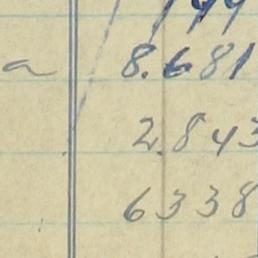 a 8.681
2.843
6338